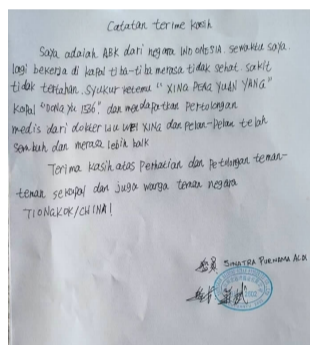 Catatan terime kasih
Saya adalah ABK dari negara INDONESIA. sewaktu saya
lagi bekerja di kapal tiba-tiba merasa tidak sehat. sakit
tidak tertahan. syukur ketemu "XING PENG YUAN YANG"
kapal "DONG YU 1536" dan mendapatkan Pertolongan
medis dari dokter WU WEI XING dan Pelan-Pelan telah
sembuh dan merasa lebih baik
Terima kasih atas Perhatian dan Petolongan teman-
teman sekapal dan juga warga teman negara
TIONGKOK/CHINA!
船员 SINATRA PURNAMA ALDI